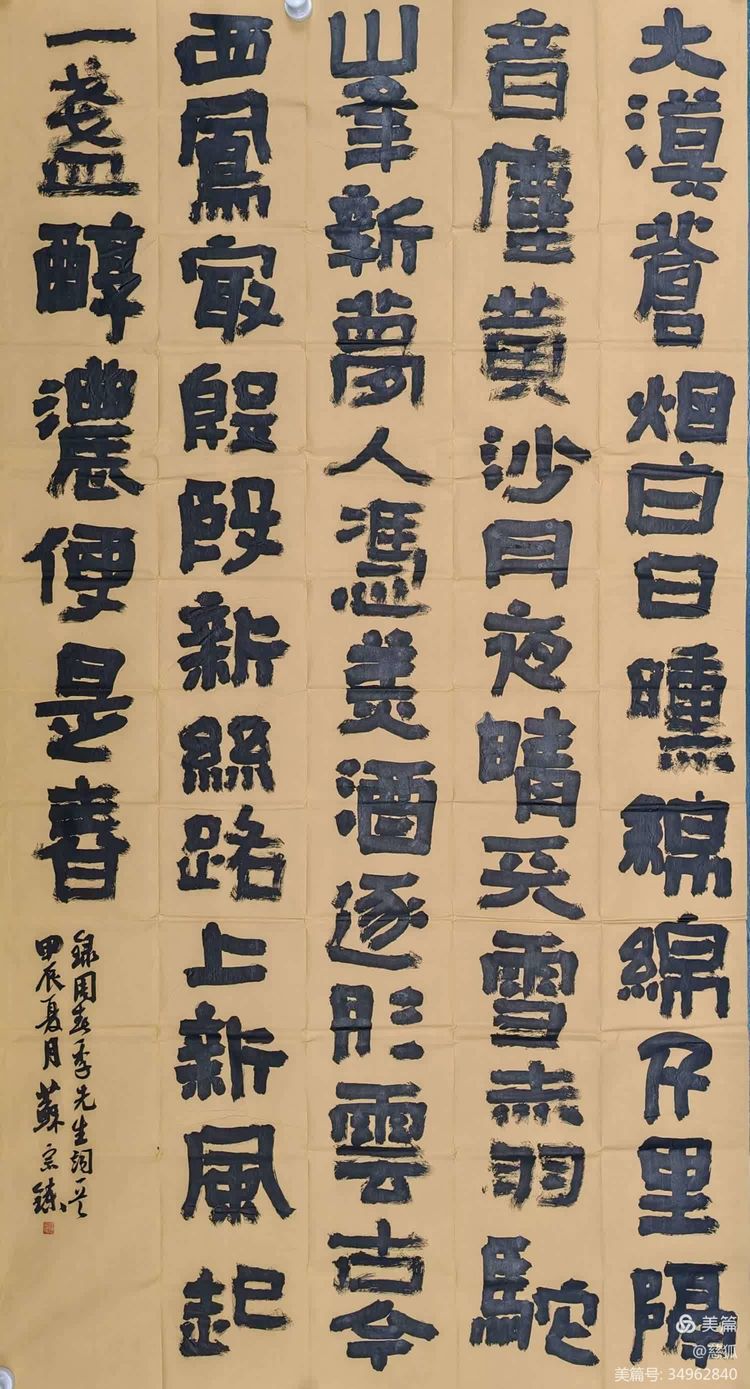 大漠蒼烟白日曛綿綿千里隔
音塵黄沙月夜晴天雪赤羽駝
峯新夢人憑美酒逐彤雲古今
西鳳最殷殷新絲路上新風起
一盞醇濃便是春
錄周季先生詞一首
甲辰夏月蘇宗
美篇
@慈狐
美篇号: 34962840